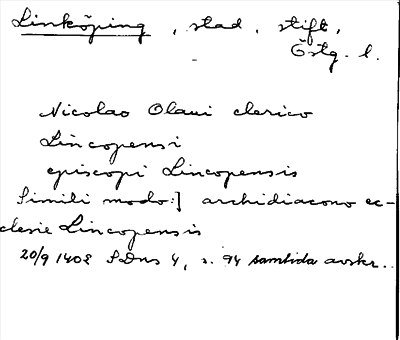 Linköping, stad, stift,
Östg. l.
Nicolao Olaui clerico
Lincopensi
episcopi Lincopensis
Simili modo:] archidiacono ec-
clesie Lincopensis
20/9 1402 SDns 4, s. 94 samtida avskr..